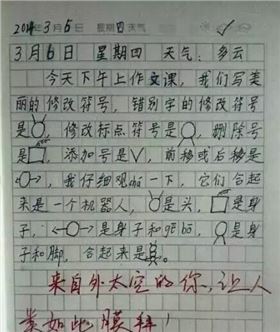 2014年3月6日 星期四 天气
3月6日 星期四 天气：多云
今天下午上作文课，我们写美
丽的修改符号，错别字的修改符号
是，修改标点符号是，删除号
是，添加号是V，前移或后移是
，我仔细观chá一下，它们合起
来是一个机器人，是头，是身
子，是脖子和gēbo，是身
子和脚，合起来是
来自外太空的你，让人
类如此膜拜！